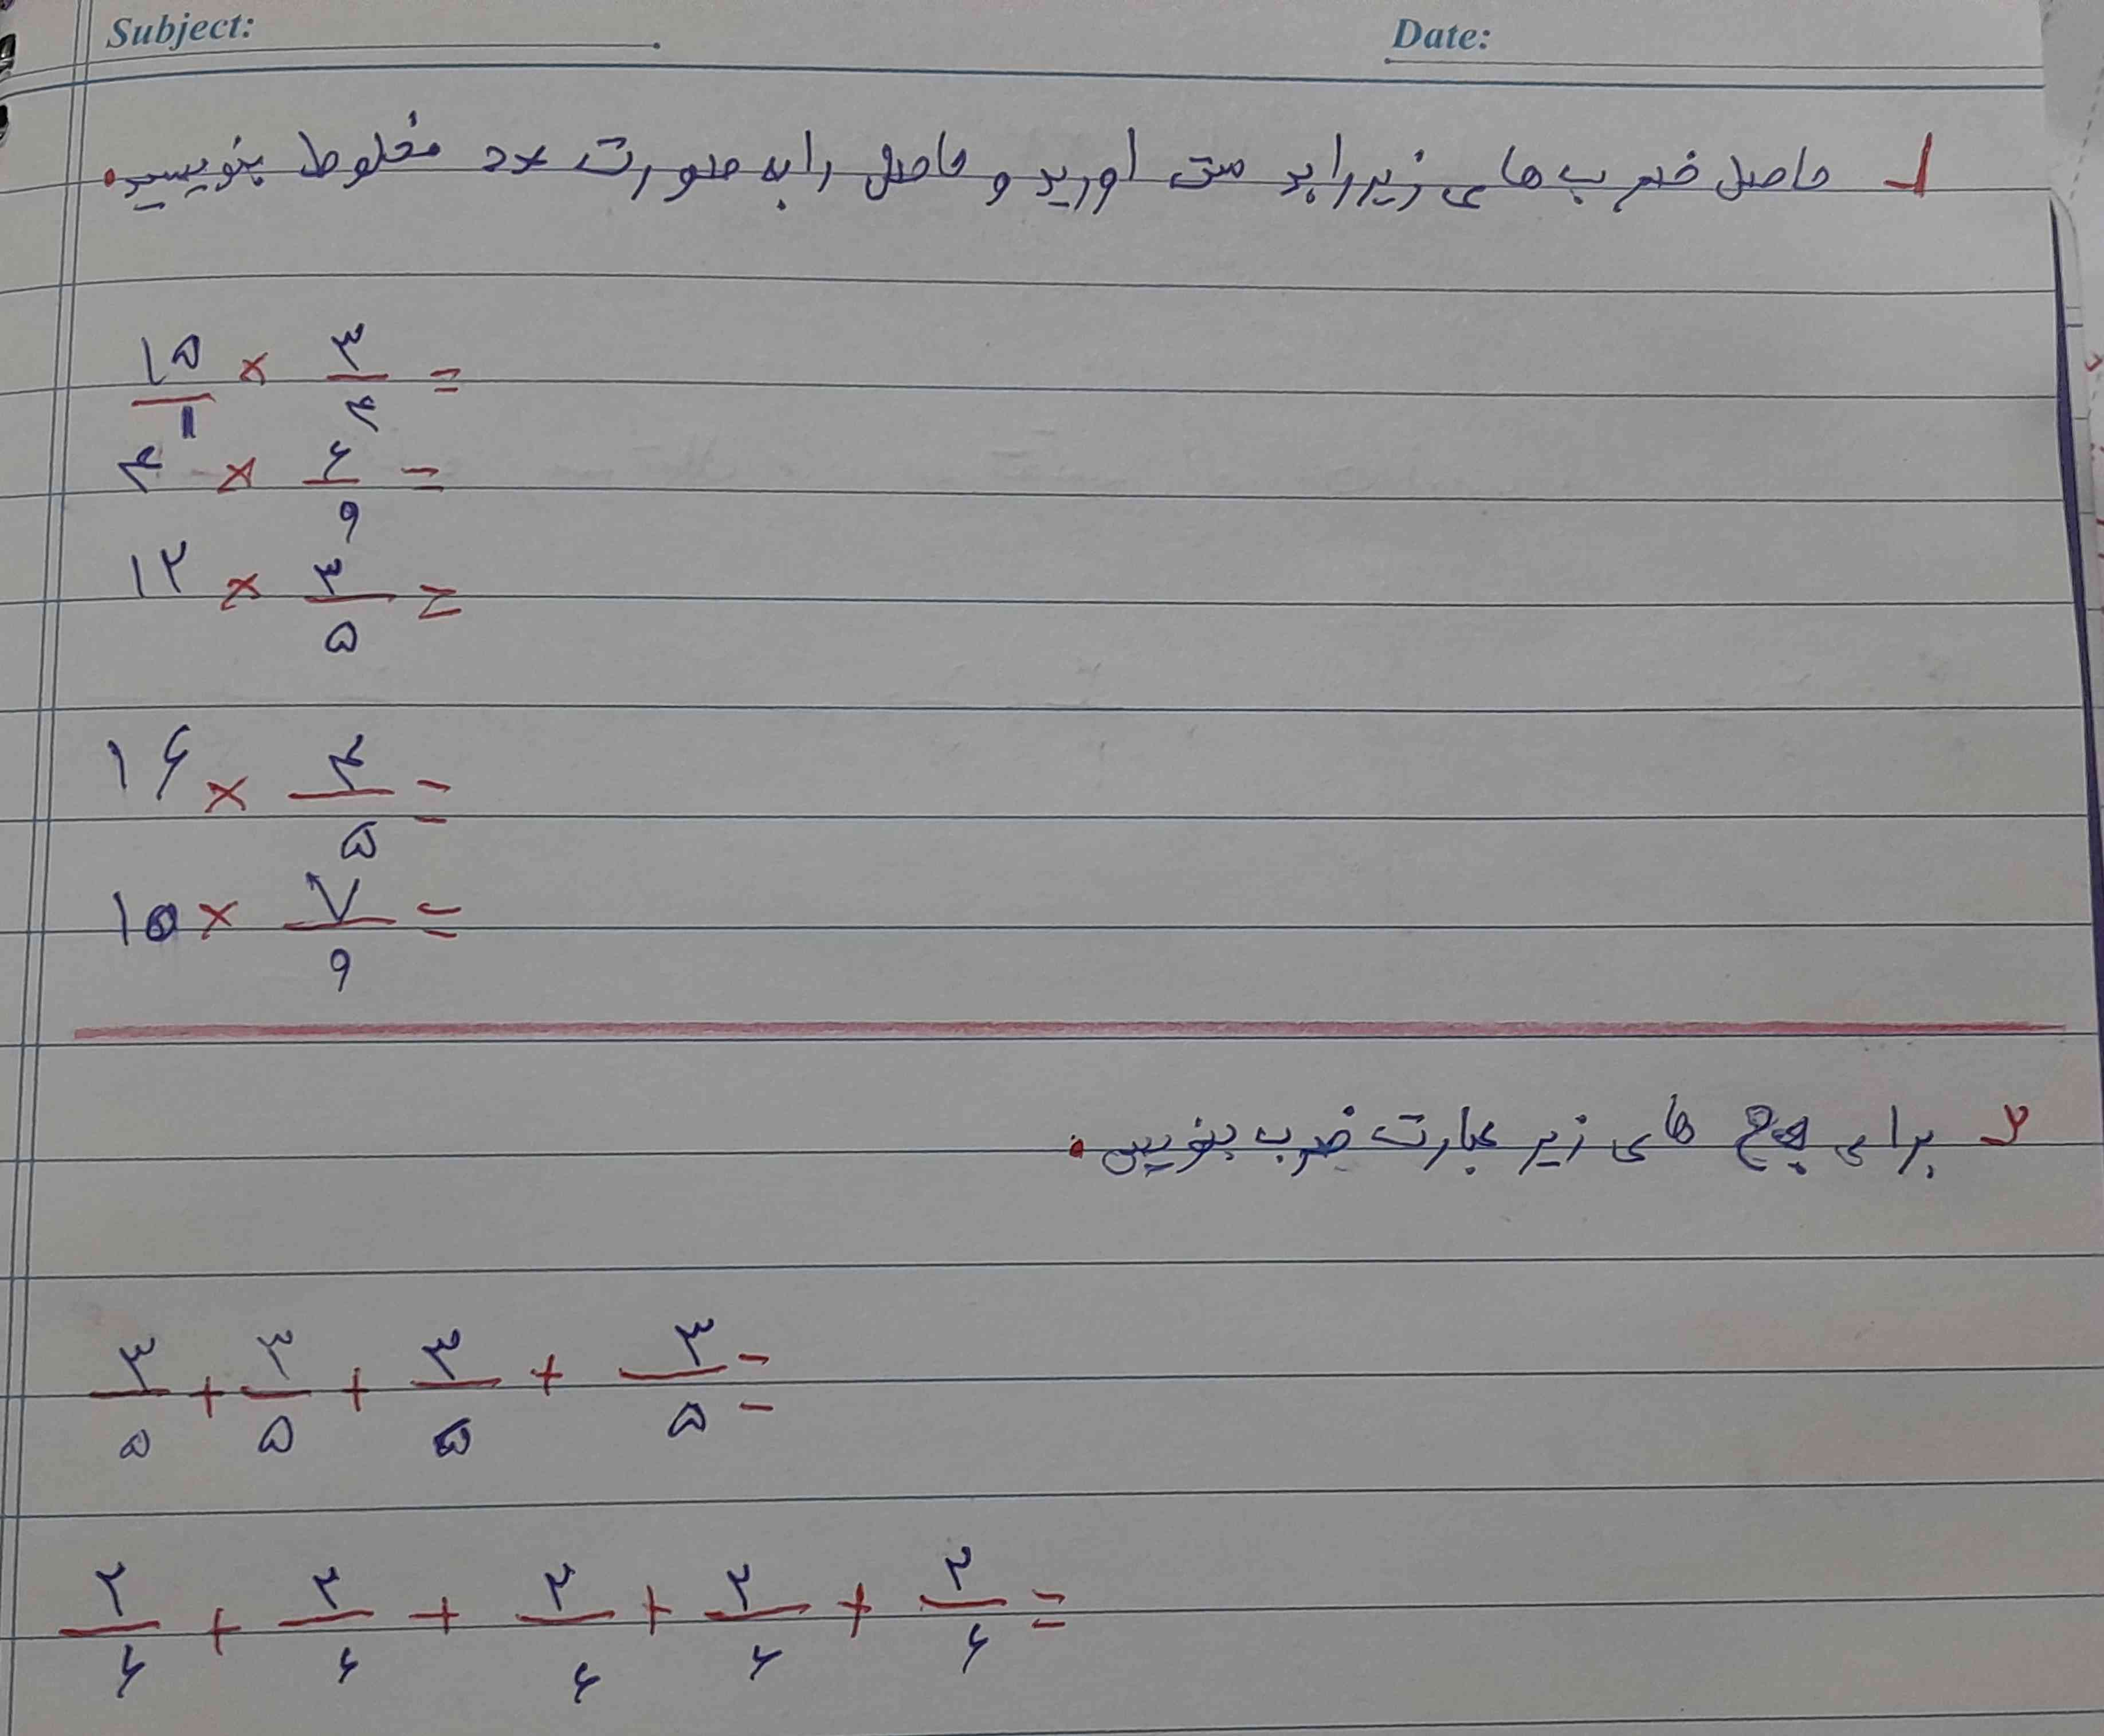 Subject: Date:
۱ـ حاصل ضرب های زیر را بد ست اورید و حاصل را به صورت عدد مخلوط بنویسید.
۱۵/۱ × ۳/۴ =
۴ × ۶/۹ =
۱۲ × ۳/۵ =
۱۶ × ۴/۵ =
۱۵ × ۷/۹ =
۲ـ برای جمع های زیر عبارت ضرب بنویس.
۳/۵ + ۳/۵ + ۳/۵ + ۳/۵ =
۲/۶ + ۲/۶ + ۲/۶ + ۲/۶ + ۲/۶ =